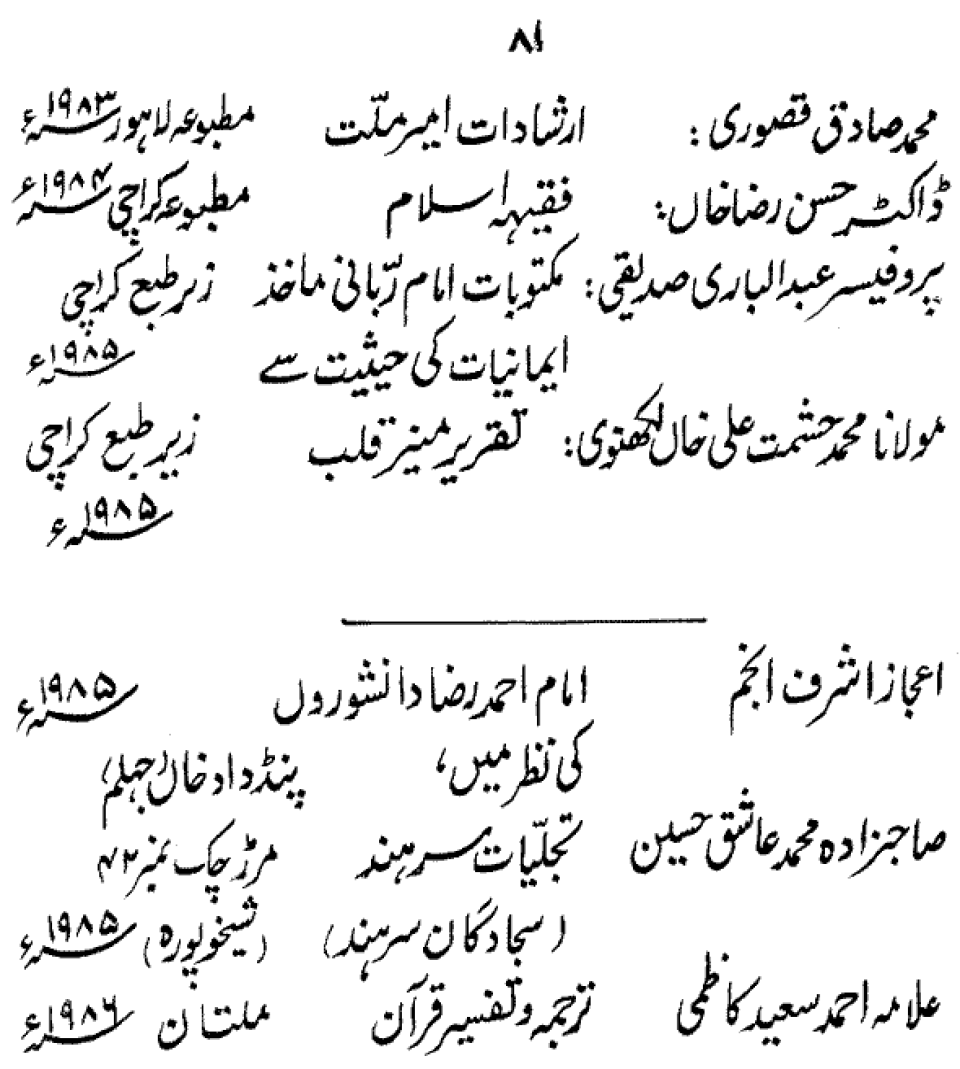 ۸۱
محمد صادق قصوری : ارشادات امیر ملّت مطبوعہ لاہور ۱۹۸۳ء
ڈاکٹر حسن رضا خاں: فقیہہ اسلام مطبوعہ کراچی ۱۹۸۴ء
پروفیسر عبدالباری صدیقی: مکتوبات امام ربّانی ماٰخذ زیر طبع کراچی
ایمانیات کی حیثیت سے ۱۹۸۵ء
مولانا محمد حشمت علی خاں لکھنوی: تقریر منیر قلب زیر طبع کراچی
۱۹۸۵ء
اعجاز اشرف انجم امام احمد رضا دانشوروں ۱۹۸۵ء
کی نظر میں، پنڈدادخاں (جہلم)
صاحبزادہ محمد عاشق حسین تجلّیات سرہند مرڑ چاک نمبر ۴۲
(سجادگان سرہند) (شیخوپورہ) ۱۹۸۵ء
علامہ احمد سعید کاظمی ترجمہ و تفسیر قرآن ملتان ۱۹۸۶ء